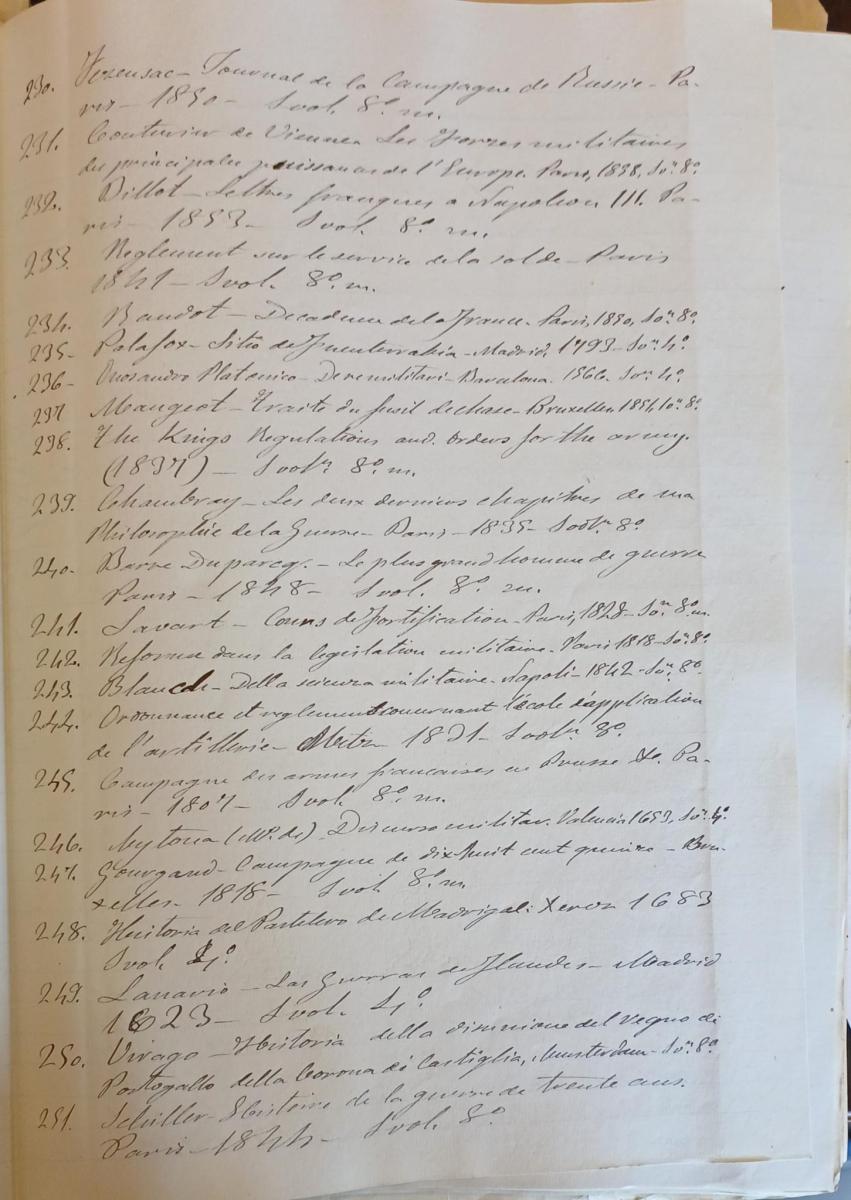 230. Fezensac – Journal de la Campagne de Russie – Pa-
ris – 1850 – 1 vol. 8º m.
231. Couturier de Vienne Les Forces militaires
des principales puissances de l'Europe. Paris, 1858, 1 oⁿ. 8º.
232. Billot – Lettres franques a Napoleon III. Pa-
ris – 1853 – 1 vol. 8º m.
233. Reglement sur le service de la solde – Paris
1841 – 1 vol. 8º m.
234. Raudot – Decadence de la France. Paris, 1850, 1 oⁿ. 8º.
235 – Palafox – Sitio de Fuenterrabia – Madrid, 1793 – 1 oⁿ. 4º.
236 – Onosandro Platonico – De re militari – Barcelona. 1566. 1 oⁿ. 4º.
237 Mangeot – Traité du fusil de chasse – Bruxelles 1851, 1 oⁿ. 8º.
238. The Kings Regulations and. orders for the army.
(1837) – 1 volⁿ 8º m.
239. Chambray – Les deux derniers chapitres de ma
Philosophie de la Guerre – Paris – 1835 – 1 volⁿ 8º.
240. Barre Duparcq. – Le plus grand homme de guerre
Paris – 1848 – 1 vol. 8º m.
241. Savart – Cours de fortification – Paris, 1828 – 1 oⁿ 8º m.
242. Reforme dans la legislation militaire. Paris 1818 – 1 oⁿ. 8º.
243. Blanch – Della scienza militare. Napoli – 1842 – 1 oⁿ. 8º.
244. Ordonnance et reglement concernant l'école d'application
de l'artillerie – Metz – 1831 – 1 volⁿ 8º.
245. Campagne des armes francaises en Prusse &. Pa-
ris – 1807 – 1 vol. 8º m.
246. Aytona (Mº. de) – Discurso militar. Valencia 1653, 1 oⁿ. 4º
247. Gourgaud – Campagne de dix huit cent quinze – Bru-
xelles – 1818 – 1 vol 8º m
248. Historia del Pastelero de Madrigal: Xerez 1683
1 vol. 4º.
249. Lanario – Las Guerras de Flandes – Madrid
1623 – 1 vol. 4º
250. Virago – Historia della disunione del regno di
Portogallo della Corona di Castiglia, Amsterdam – 1 oⁿ. 8º.
251. Schiller – Histoire de la guerre de trente ans.
Paris – 1844 – 1 vol. 8º.